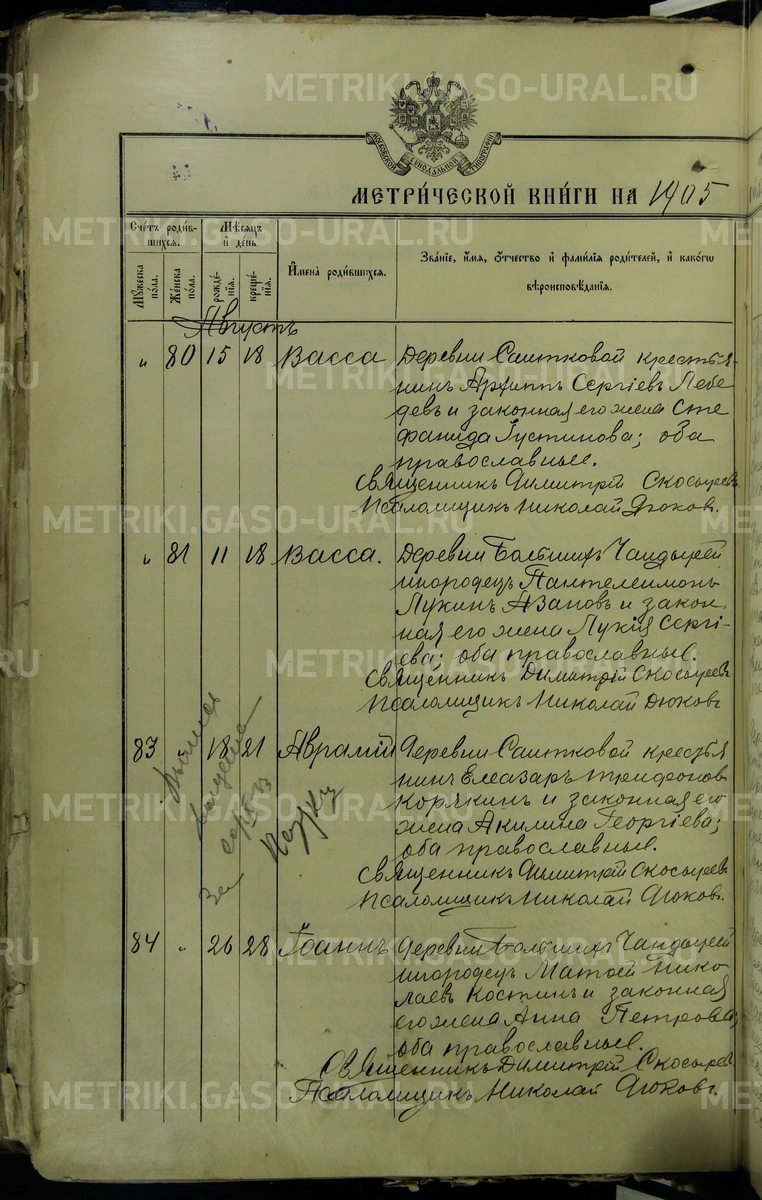 METRIKI.GASO-URAL.RU
МОСКОВСКОЙ СѴНОДАЛЬНОЙ ТИПОГРАФІИ
МЕТРИ́ЧЕСКОЙ КНИ́ГИ НА 1905
Сче́тъ роди́в-
шихся.
Му́жеска по́ла.
Же́нска по́ла.
Мѣ́сяцъ
и҆ де́нь
рожде́-
нїѧ.
креще́-
нїѧ.
И҆мена̀ роди́вшихся.
Зва́нїе, и҆́мѧ, ѻ҆́тчество и҆ фами́лїѧ роди́телей, и҆ како́гѡ
вѣроисповѣ́данїѧ.
Августъ
" 80 15 18 Васса Деревни Саитковой крестья-
нинъ Архиппъ Сергіевъ Лебе-
девъ и законная его жена Сте
фанида Іустинова; оба
православные.
Священникъ Димитрій Скосыревъ
Псаломщикъ Николай Дюковъ.
" 81 11 18 Васса. Деревни Большихъ Чандырей
инородецъ Пантелеимонъ
Лукинъ Азаповъ и закон
ная его жена Лукія Сергі-
ева; оба православные.
Священникъ Димитрій Скосыревъ
Псаломщикъ Николай Дюковъ
83 18 21 Аврамій Деревни Саитковой крестья
нинъ Елеазаръ Трифоновъ
Корчкинъ и законная его
жена Акилина Георгіева;
оба православные.
Священникъ Димитрій Скосыревъ
Псаломщикъ Николай Дюковъ.
84 " 26 28 Іоаннъ Деревни Большихъ Чандырей
инородецъ Матѳей Нико-
лаевъ Костинъ и законная
его жена Анна Петрова;
оба православные.
Священникъ Димитрій Скосыревъ
Псаломщикъ Николай Дюковъ.